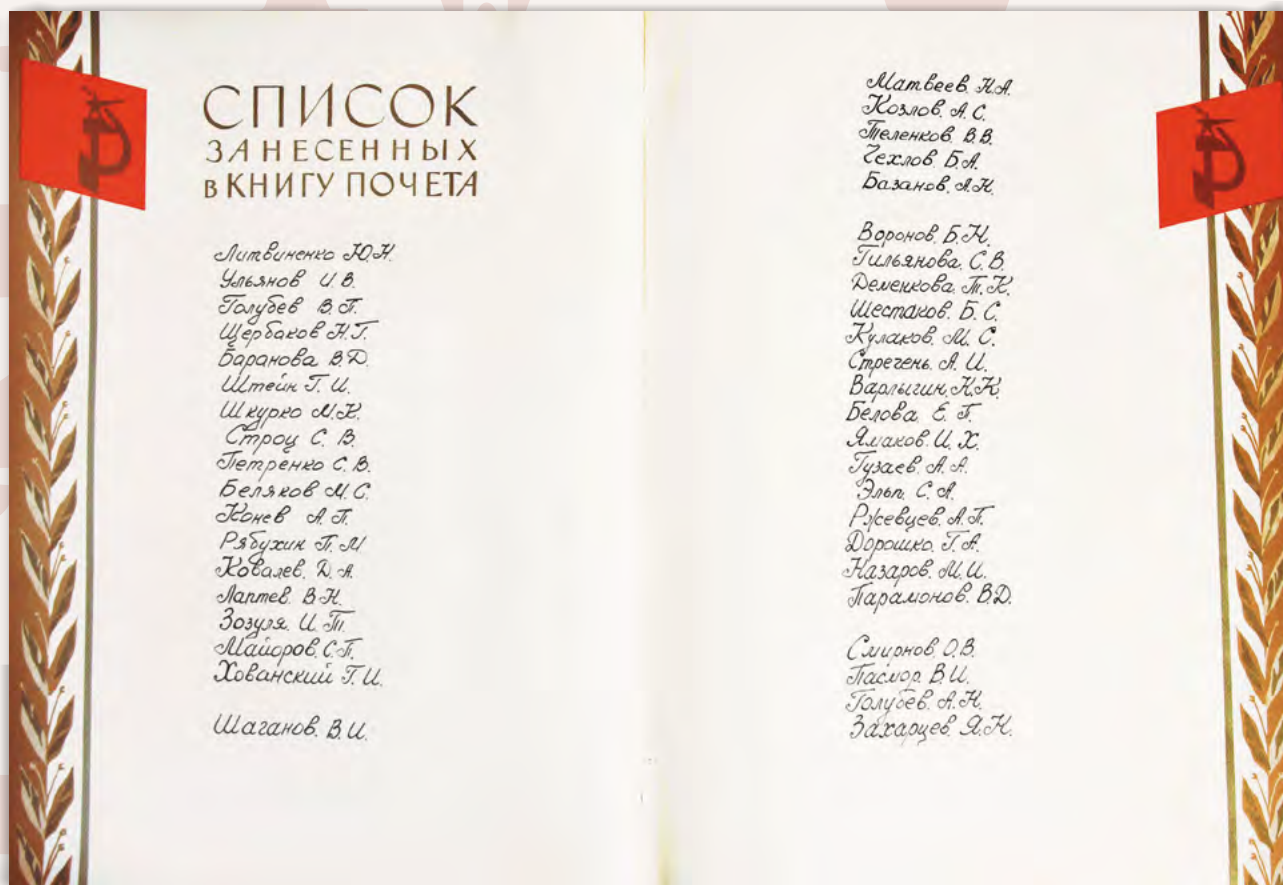 СПИСОК
ЗАНЕСЕННЫХ
в КНИГУ ПОЧЕТА
Литвиненко Ю.Н.
Ульянов И.В.
Голубев В.П.
Щербаков Н.Г.
Баранова В.Д.
Штейн Г.И.
Шкурко М.К.
Строц С.В.
Петренко С.В.
Беляков М.С.
Конев А.П.
Рябухин П.М.
Ковалев. Д.А.
Лаптев. В.Н.
Зозуля. И.Т.
Майоров. С.П.
Хованский Г.И.
Шаганов. В.И.
Матвеев. Н.А.
Козлов. А.С.
Теленков. В.В.
Чехлов. Б.А.
Базанов. А.Н.
Воронов. Б.Н.
Гильянова. С.В.
Деменкова. Т.К.
Шестаков. Б.С.
Кулаков. М.С.
Стрегень. А.И.
Варлыгин. Н.Н.
Белова. Е.Г.
Ямаков. И.Х.
Гузаев. А.А.
Эльп. С.А.
Ржевцев. А.П.
Дорошко. Г.А.
Назаров. М.И.
Парамонов. В.Д.
Смирнов. О.В.
Пасмор. В.И.
Голубев. А.Н.
Захарцев. Я.Н.